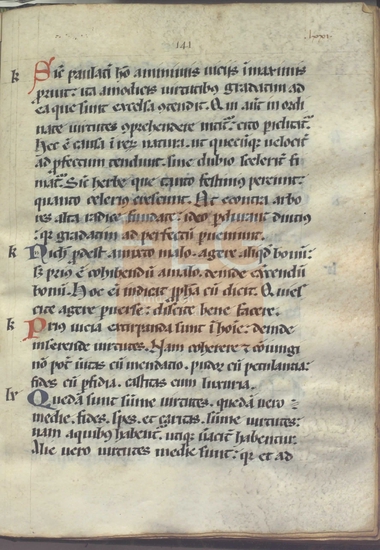 141
lxxxi
k Sic paulatī hō aminimis viciis ī maximis
pruit: ita amodicis virtutibus gradatim ad
ea que sunt excelsa ꝯtendit. Q ui aut inordi
nate virtutes ꝯprehendere nitit: cito piclitat.
Hec ē causa ī reꝝ natura. ut quecūq; velocit
ad pfectum tendunt. sine dubio sceleriť fi
niat. Sic herbe que tanto festinius pereunt:
quanto celerius crescunt. At econtra arbo
res alta radice fundate: ideo pdurant diutius
qꝛ gradatim ad perfectū pueniunt.
k Nichil pdest amixto malo. agere aliqd bonū:
s; prius ē cohibendū amalo. deinde exercendū
bonū. Hoc eī indicat ppha cū dicit. Q uies
cite agere puerse: discite bene facere.
k Prius vicia extirpanda sunt ī hoie: deinde
inserende virtutes. Nam coherere ⁊ cōiungi
nō pot vitas cū mendatio. pudor cū petulantia:
fides cū pfidia. castitas cum luxuria.
lv Quedā sunt sūme virtutes. quedā vero
medie. fides. spes. et caritas. sūme virtutes:
nam aquibus habent. utiq; vacit habentur.
Alie vero virtutes medie sunt: qꝛ et ad